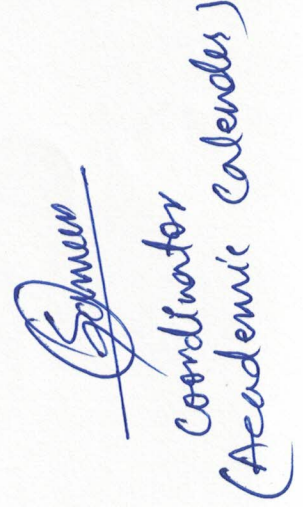 Sameer
Coordinator
(Academic Calender)